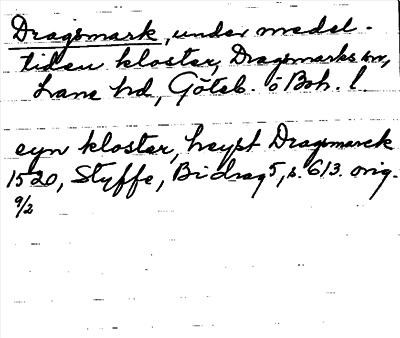 Dragsmark, under medel-
tiden kloster, Dragsmarks sn,
Lane hd, Göteb. o Boh. l.
eyn kloster, heyst Dragsmarck
1520, Styffe, Bidrag 5, s. 613. orig.
9/2